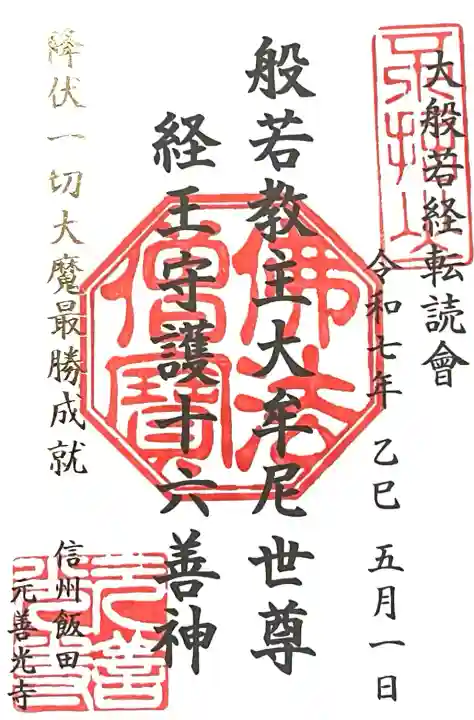 大般若経転読會
令和七年 乙巳 五月一日
般若教主大牟尼世尊
経王守護十六善神
降伏一切大魔最勝成就
信州飯田
元善光寺
佛法
僧寶
元善
光寺